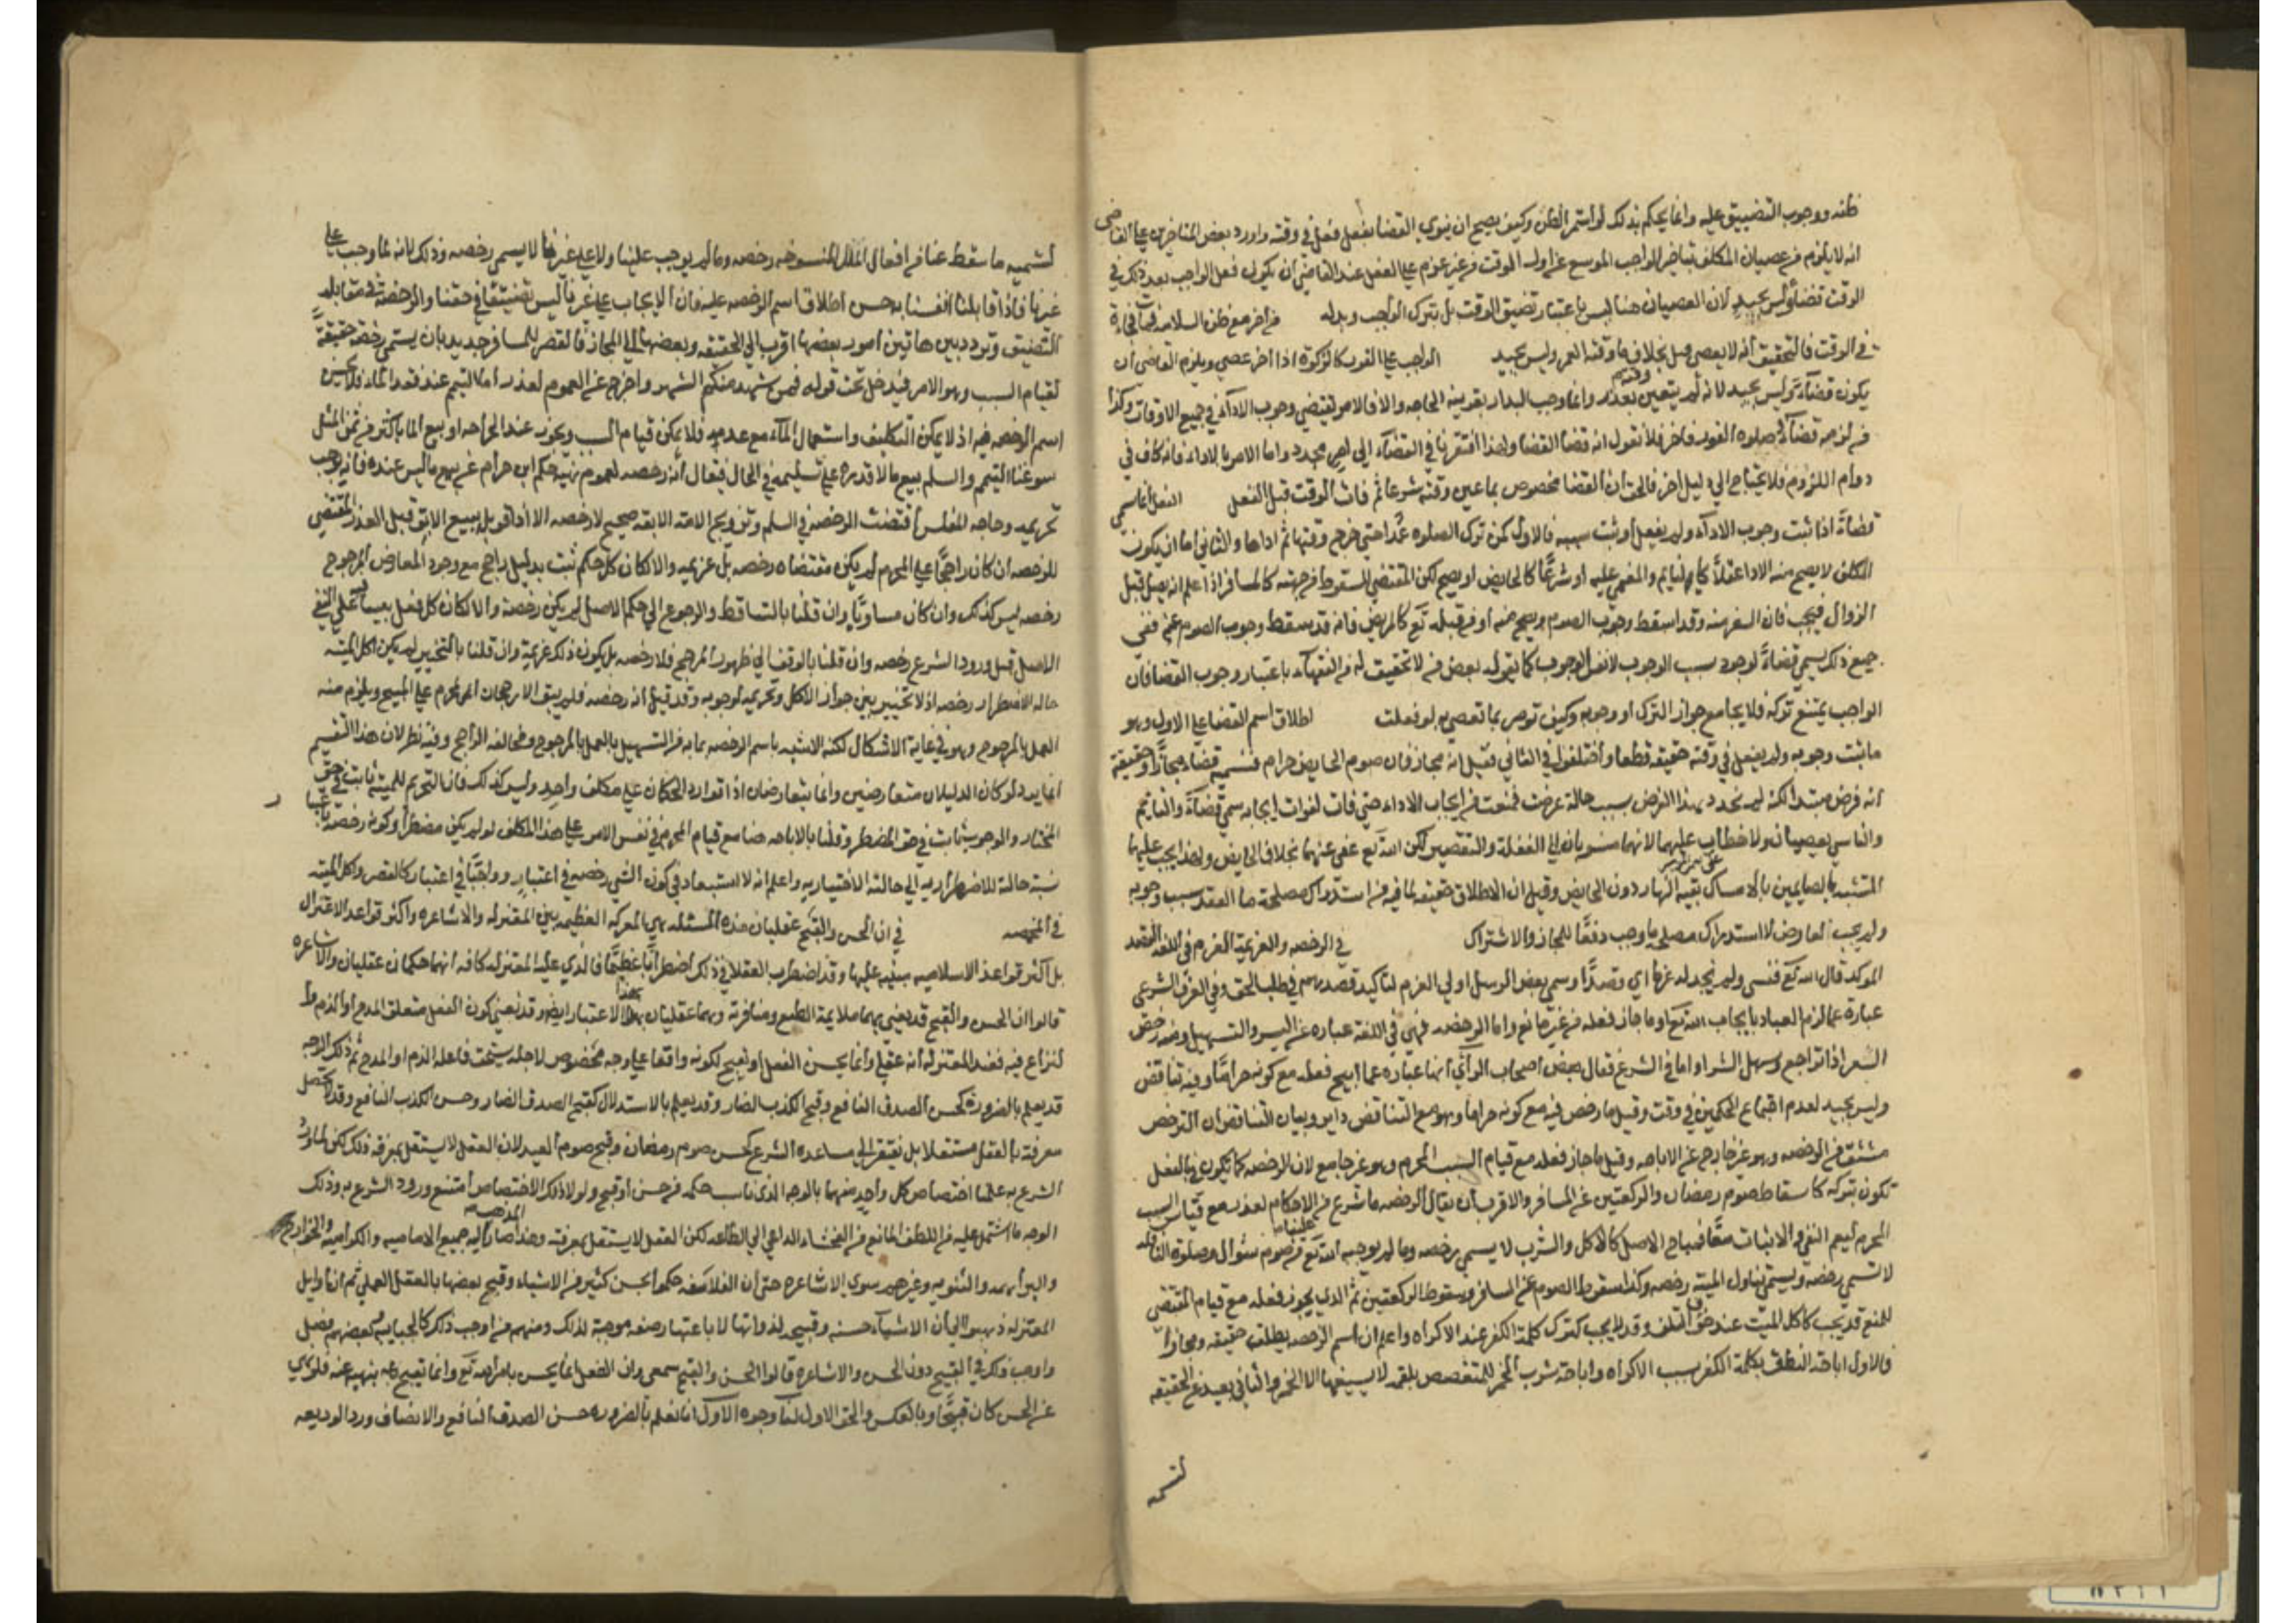 ظنه ووجوب التضييق عليه وانما يحكم بذلك لو استمر الظن وكيف يصح ان ينوي القضا بفعل فعل في وقته واورد بعض المتاخرين علي القاضي
انه لا يلزم من عصيان المكلف بتاخير الواجب الموسع عن اول الوقت من غير عزم علي الفعل عند القاضي ان يكون فعل الواجب بعد ذلك في
الوقت قضاء وليس بجيد لان العصيان هنا ليس باعتبار تضيق الوقت بل بترك الواجب وبدله من اخر مع ظن السلامه فمات فجاءة
في الوقت فالتحقيق انه لا يعصي بخلاف ما وقته العمر وليس بجيد الواجب علي الفور كالزكوة اذا اخر عصي ويلزم القاضي ان
يكون قضاء وليس بجيد لانه لم يتعين وقته بعدد وانما وجب البدار بقرينه الحاجه والا فالامر يقتضي وجوب الاداء في جميع الاوقات وكذا
من لزمه قضاء صلوه الفور فاخر فلا نقول انه قضا القضا ولهذا افتقرنا في القضاء الي امر مجدد واما الامر بالاداء فانه كاف في
دوام اللزوم فلا يحتاج الي دليل اخر فالحق ان القضا مخصوص بما عين وقته شرعا ثم فات الوقت قبل الفعل الفعل انما سمي
قضاء اذا ثبت وجوب الاداء ولم يفعل او ثبت سببه فالاول كمن ترك الصلوه عمدا حتي خرج وقتها ثم اداها والثاني اما ان يكون
المكلف لا يصح منه الادا عقلا كالنايم والمغمي عليه او شرعا كالحايض او يصح لكن المقتضي للسقوط من جهته كالمسافر اذا علم انه يصل قبل
الزوال فيجب فان السفر منه وقد اسقط وجوب الصوم ويصح منه او من قبله تع كالمريض فانه قد سقط وجوب الصوم عنه ففي
جميع ذلك يسمي قضاء لوجود سبب الوجوب لا نفس الوجوب كما يقوله بعض من لا تحقيق له من الفقهاء باعتبار وجوب القضا فان
الواجب يمتنع تركه فلا يجامع جواز الترك او وجوبه وكيف تومر بما تعصي به لو فعلت اطلاق اسم القضا علي الاول وهو
ما ثبت وجوبه ولم يفعل في وقته حقيقه قطعا واختلفوا في الثاني فقيل انه مجاز فان صوم الحايض حرام فتسميته قضاء مجازا وحقيقة
انه فرض مبتدا لكنه لم تجدد هذا الفرض بسبب حالة عرضت فمنعت من ايجاب الاداء حتي فات لفوات ايجابه سمي قضاء والنايم
والناسي يعصيان ولا خطاب عليهما لانهما منسوبان الي الغفلة والتقصير لكن الله تع عفي عنهما بخلاف الحايض ولهذا يجب عليهما
التشبه بالصايمين بالامساك بقيه النهار دون الحايض وقيل ان الاطلاق حقيقه لما فيه من استدراك مصلحة ما انعقد سبب وجوبه
ولم يجب لعارض لا استدراك مصلحة ما وجب دفعا للمجاز والاشتراك في الرخصه والعزيمة العزم في اللغه القصد
الموكد قال الله تع فنسي ولم نجد له عزما اي قصدا وسمي بعض الرسل اولي العزم لتاكيد قصدهم في طلب الحق وفي العرف الشرعي
عبارة عما لزم العباد بايجاب الله تع او ما جاز فعله من غير مانع واما الرخصه فهي في اللغة عباره عن اليسر والتسهيل ومنه رخص
السعر اذا تراجع وسهل الشرا واما في الشرع فقال بعض اصحاب الراي انها عباره عما ابيح فعله مع كونه حراما وفيه تناقض
وليس بجيد لعدم اجتماع الحكمين في وقت وقيل ما رخص فيه مع كونه حراما وهو مع التناقض داير وبيان التناقض ان الترخص
مشتق من الرخصه وهو غير خارج عن الاباحه وقيل ما جاز فعله مع قيام السبب المحرم وهو غير جامع لان الرخصه كما تكون بالفعل
تكون بتركه كاسقاط صوم رمضان والركعتين عن المسافر والاقرب ان يقال الرخصه ما شرع من الاحكام لعذر مع قيام السبب
المحرم ليعم النفي والاثبات معا فمباح الاصل كالاكل والشرب لا يسمي رخصه وما لم يوجبه الله تع علينا من صوم شوال وصلوة النافله
لا تسمي رخصه ويسمي تناول الميته رخصه وكذا سقوط الصوم عن المسافر وسقوط الركعتين ثم الذي يجوز فعله مع قيام المقتضي
للمنع قد يجب كاكل الميت عند خوف التلف وقد لا يجب كترك كلمة الكفر عند الاكراه واعلم ان اسم الرخصه يطلق حقيقه ومجازا
فالاول اباحة النطق بكلمة الكفر بسبب الاكراه واباحة شرب الخمر للمتغصص بلقمه لا يسيغها الا الخمر والثاني بعيد عن الحقيقه
لتسميه
لتسميه ما سقط عنا من افعال الملل المنسوخه رخصه وما لم يوجب علينا ولا علي غيرنا لا يسمي رخصه وذلك لانه لما وجب علي
غيرنا فاذا قابلنا انفسنا به حسن اطلاق اسم الرخصه عليه فان الايجاب علي غيرنا ليس تضييقا في حقنا والرخصة في مقابله
التضييق وتردد بين هاتين امور بعضها اقرب الي الحقيقه وبعضها الي المجاز فالقصر للمسافر جدير بان يسمي رخصة حقيقة
لقيام السبب وهو الامر فيدخل تحت قوله فمن شهد منكم الشهر واخرج عن العموم لعذر اما التيمم عند فقد الماء فلا يحسن
اسم الرخصه فيه اذ لا يمكن التكليف واستعمال الماء مع عدمه فلا يمكن قيام السبب ويجوز عند الجراحه او بيع الما باكثر من ثمن المثل
سوغنا التيمم والسلم بيع ما لا قدره علي تسليمه في الحال فيقال انه رخصه لعموم نهيه حكيم ابن حزام عن بيع ما ليس عنده فانه يوجب
تحريمه وحاجه المفلس اقتضت الرخصة في السلم وتزويج الامة الابقه صحيح لا رخصه الا اذا قوبل ببيع الابق قبل العذر المقتضي
للرخصه ان كان راجحا علي المحرم لم يكن مقتضاه رخصه بل عزيمه والا لكان كل حكم ثبت بدليل راجح مع وجود المعارض المرجوح
رخصه ليس كذلك وان كان مساويا وان قلنا بالتساقط والرجوع الي حكم الاصل لم يكن رخصة والا لكان كل فعل بقينا فيه علي النفي
الاصلي قبل ورود الشرع رخصه وان قلنا بالوقف الي ظهور المرجح فلا رخصه بل يكون ذلك عزيمة وان قلنا بالتخيير لم يكن اكل الميته
حاله الاضطرار رخصه اذ لا تخيير بين جواز الاكل وتحريمه لوجوبه وقد قيل انه رخصه فلم يبق الا رجحان المحرم علي المبيح ويلزم منه
العمل بالمرجوح وهو في غاية الاشكال لكنه الاشبه باسم الرخصه لما به من التسهيل بالعمل بالمرجوح ومخالفه الراجح وفيه نظر لان هذا التقسيم
انما يرد لو كان الدليلان متعارضين وانما يتعارضان اذا توارد الحكمان علي مكلف واحد وليس كذلك فان التحريم للميتة ثابت في حق
المختار والوجوب ثابت في حق المضطر وقلنا بالاباحه هنا مع قيام المحرم في نفس الامر علي هذا المكلف لو لم يكن مضطرا وكونه رخصة
نسبة حالة للاضطراريه الي حالته الاختياريه واعلم انه لا استبعاد في كون الشي رخصه في اعتبار وواجبا في اعتبار كالقصر واكل الميته
في المخمصه في ان الحسن والقبح عقليان هذه المسئله هي المعركه العظيمه بين المعتزله والاشاعره واكثر قواعد الاعتزال
بل اكثر قواعد الاسلاميه مبنيه عليها وقد اضطرب العقلا في ذلك اضطرابا عظيما فالذي عليه المعتزله كافه انهما حكمان عقليان والاشاعره
قالوا ان الحسن والقبح قد يعني بهما ملايمة الطبع ومنافرته وهما عقليان بهذا الاعتبار ايضا وقد يعني كون الفعل متعلق المدح او الذم
لنزاع فيه فعند المعتزله انه عقلي وانما يحسن الفعل او يقبح لكونه واقعا علي وجه مخصوص لاجله يستحق فاعله الذم او المدح ثم ذلك الوجه
قد يعلم بالضروره كحسن الصدق النافع وقبح الكذب الضار وقد يعلم بالاستدلال كقبح الصدق الضار وحسن الكذب النافع وقد لا يحصل
معرفته بالعقل مستقلا بل يفتقر الي مساعده الشرع كحسن صوم رمضان وقبح صوم العيد لان العقل لا يستقل بمعرفه ذلك لكن لما ورد
الشرع به علمنا اختصاص كل واحد منهما بالوجه الذي ناسب حكمه من حسن او قبح ولولا ذلك الاختصاص امتنع ورود الشرع به وذلك
الوجه ما اشتمل عليه من اللطف المانع من الفحشاء الداعي الي الطاعه لكن العقل لا يستقل بمعرفته وهذا المذهب صار اليه جميع الاماميه والكراميه والخوارج
والبراهمه والثنويه وغيرهم سوي الاشاعره حتي ان الفلاسفه حكموا بحسن كثير من الاشياء وقبح بعضها بالعقل العملي ثم ان اوايل
المعتزله ذهبوا الي ان الاشياء حسنه وقبيحه لذواتها لا باعتبار صفه موجبة لذلك ومنهم من اوجب ذلك كالجبايه وبعضهم فصل
واوجب ذلك في القبيح دون الحسن والاشاعره قالوا الحسن والقبح سمعي وان الفعل انما يحسن بامر الله تع وانما يقبح بنهيه عنه فلو نهي
عن الحسن كان قبيحا وبالعكس والحق الاول لنا وجوه الاول انا نعلم بالضروره حسن الصدق النافع والانصاف ورد الوديعه